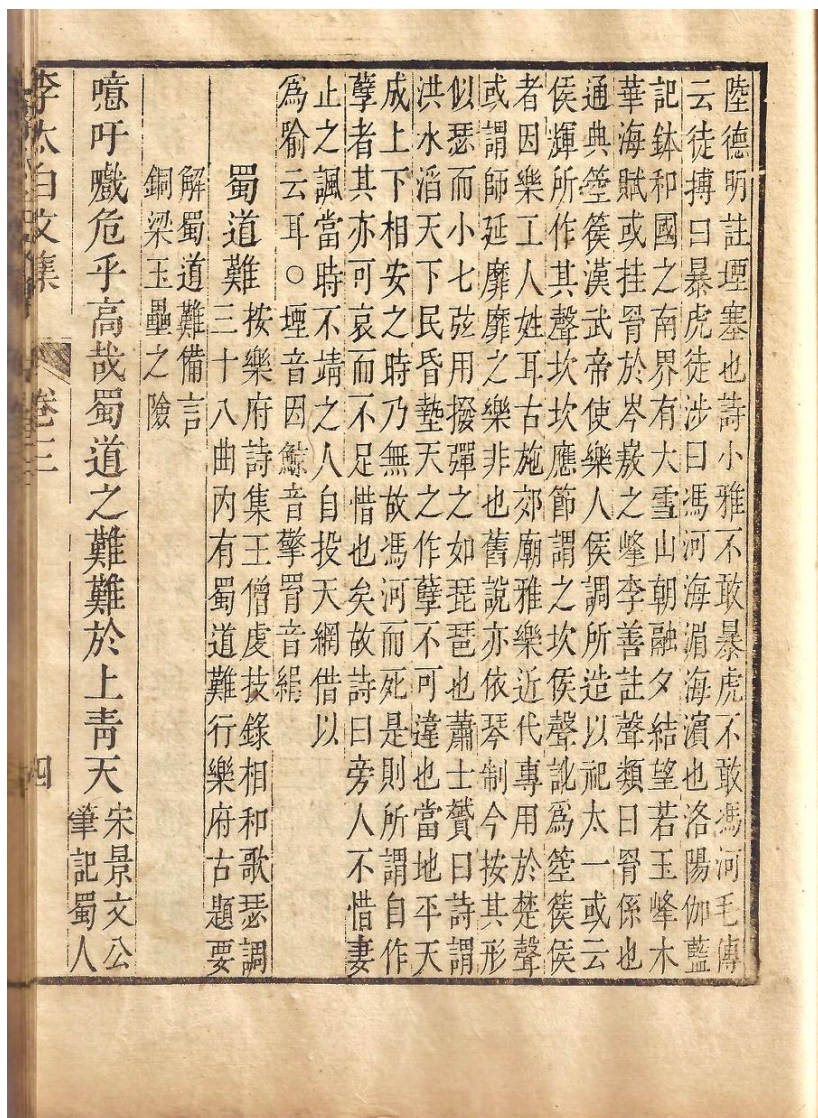 陸德明註堙塞也詩小雅不敢暴虎不敢馮河毛傳
云徒搏曰暴虎徒涉曰馮河海湄海濵也洛陽伽藍
記鉢和國之南界有大雪山朝融夕結望若玉峰木
華海賦或挂罥於岑嶅之峰李善註聲類曰罥係也
通典箜篌漢武帝使樂人侯調所造以祀太一或云
侯輝所作其聲坎坎應節謂之坎侯聲訛爲箜篌侯
者因樂工人姓耳古施郊廟雅樂近代專用於楚聲
或謂師延靡靡之樂非也舊說亦依琴制今按其形
似瑟而小七弦用撥彈之如琵琶也蕭士贇曰詩謂
洪水滔天下民昏墊天之作孽不可違也當地平天
成上下相安之時乃無故馮河而死是則所謂自作
孽者其亦可哀而不足惜也矣故詩曰旁人不惜妻
止之諷當時不靖之人自投天網借以
爲喻云耳○堙音因鯨音擎罥音絹
蜀道難
按樂府詩集王僧虔技錄相和歌瑟調
三十八曲內有蜀道難行樂府古題要
解蜀道難備言
銅梁玉壘之險
噫吁嚱危乎高哉蜀道之難難於上靑天
宋景文公
筆記蜀人
李太白文集 卷三 四